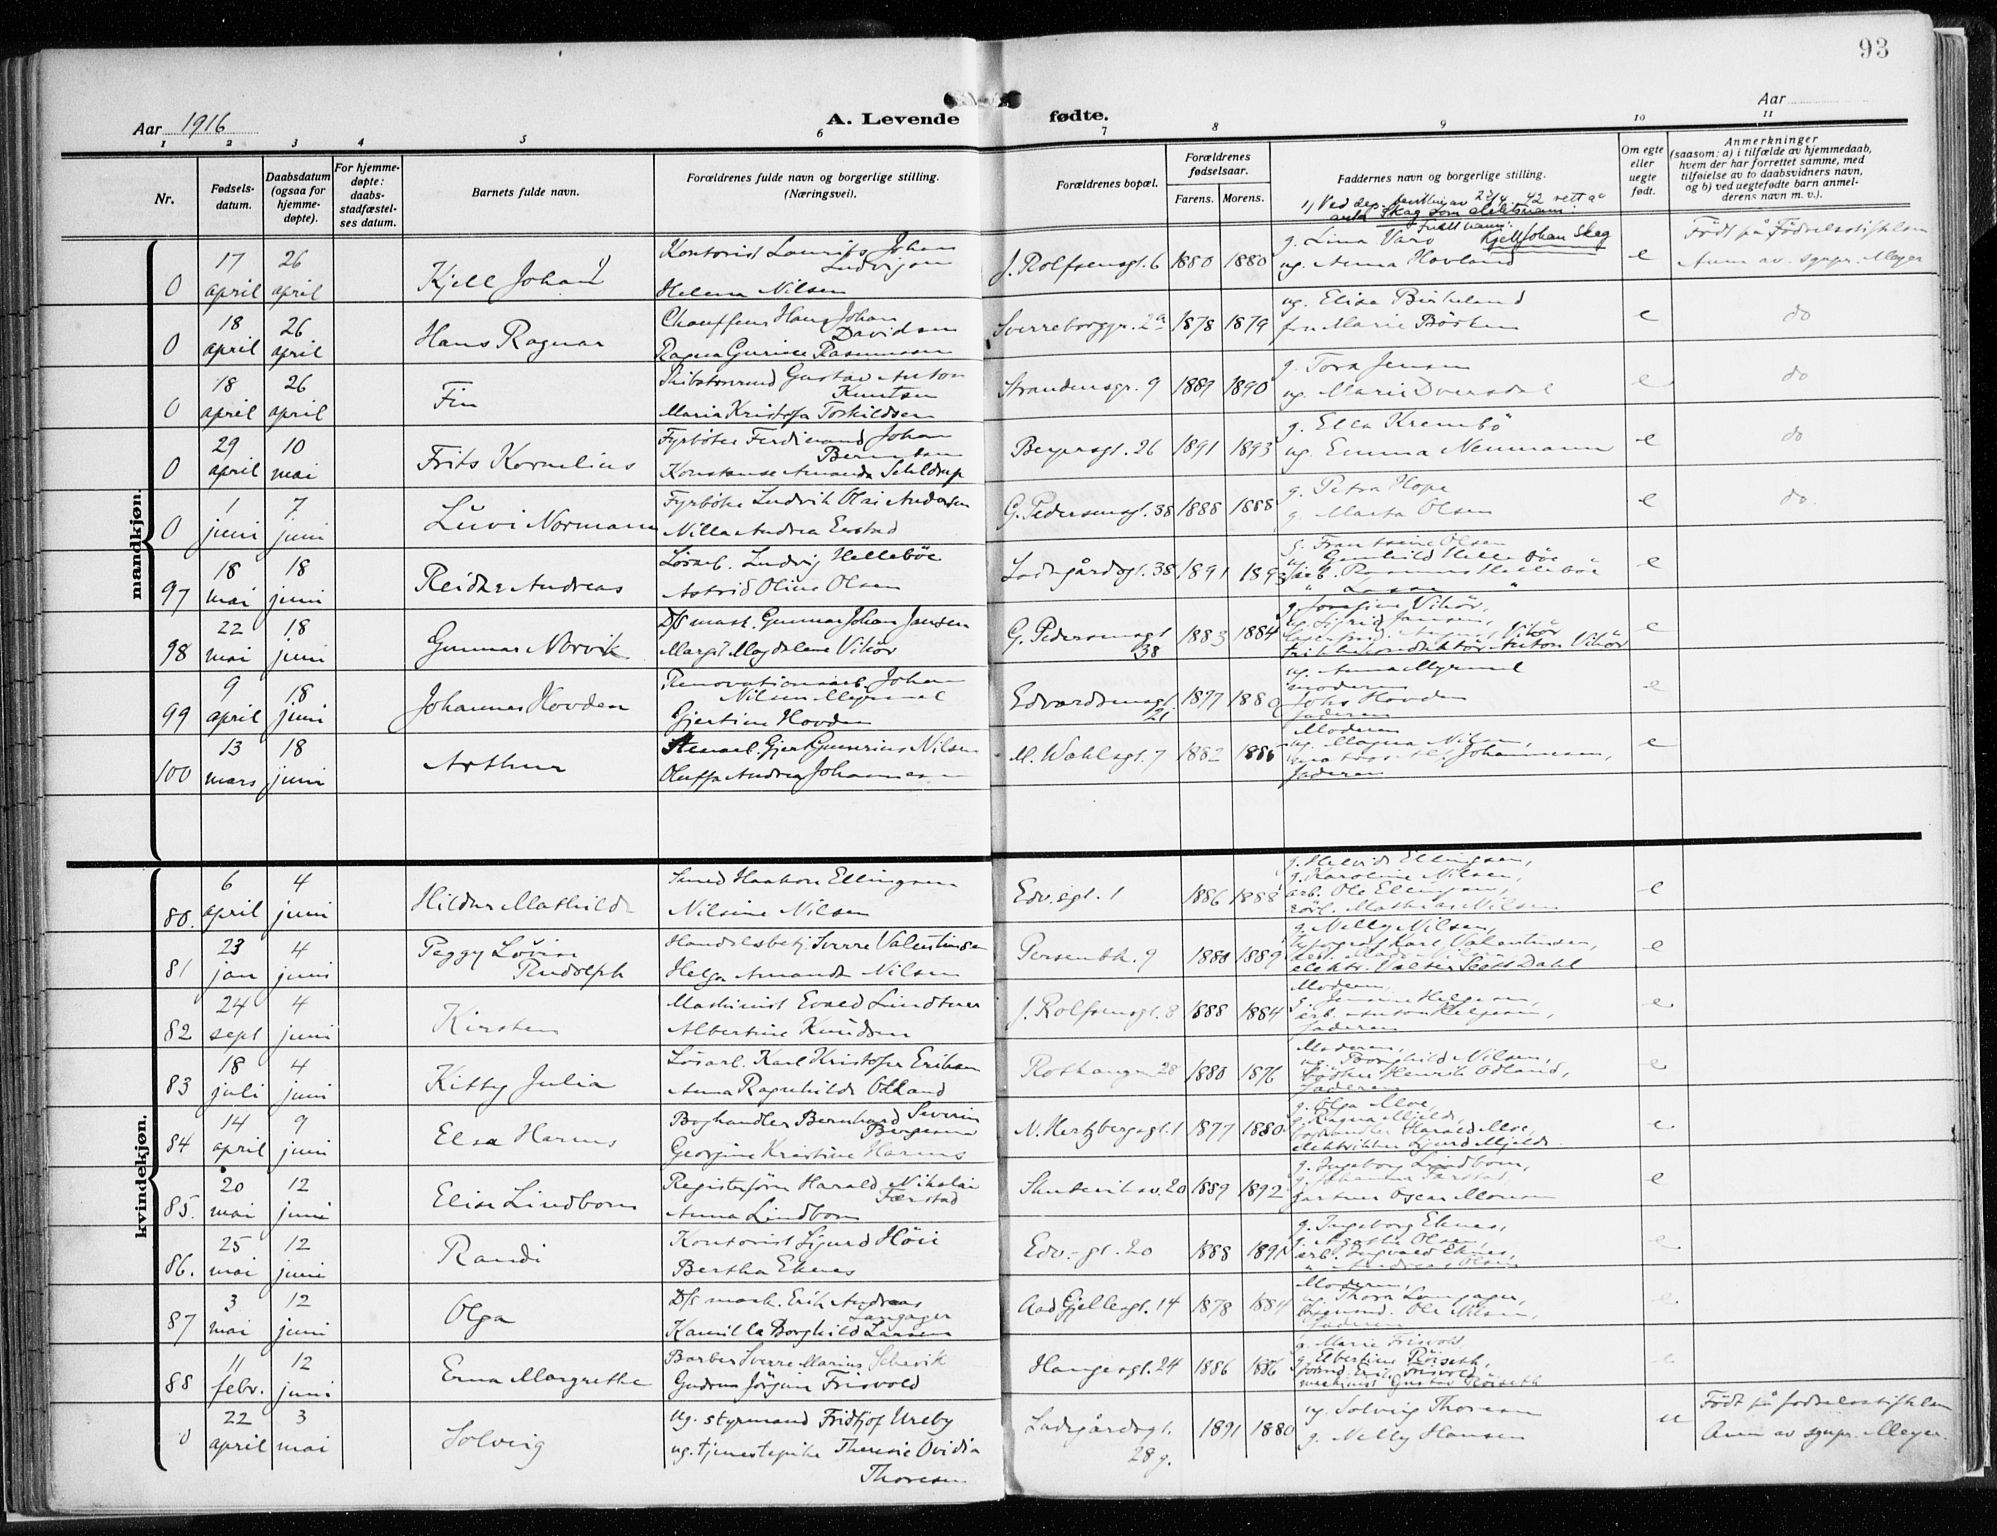 93
Aar 1916
A. Levende fødte.
Aar
1 2 3 4 5 6 7 8 9 10 11
Nr.
Fødsels-datum.
Daabsdatum (ogsaa for hjemme-døpte).
For hjemme-døpte: daabs-stadfæstel-ses datum.
Barnets fulde navn.
Forældrenes fulde navn og borgerlige stilling. (Næringsvei).
Forældrenes bopæl.
Forældrenes fødselsaar.
Farens. Morens.
Faddernes navn og borgerlige stilling.
Om egte eller uegte født.
Anmerkninger (saasom: a) i tilfælde av hjemmedaab, hvem der har forrettet samme, med tilføielse av to daabsvidners navn, og b) ved uegtefødte barn anmel-derens navn m. v.).
Kjell Johan Skag
mandkjøn.
0 17 april 26 april Kjell Johan 1) Kontorist Laurits Johan Ludvigsen
Helena Nilsen J. Rolfsensgt. 6 1880 1880 g. Lina Varo
ug. Anna Hovland e Født på Fødselsstiftelsen
Anm av. sgnpr. Meyer
0 18 april 26 april Hans Ragnar Chauffeur Hans Johan Davidsen
Ragna Gurine Rasmussen Sverreborggr. 2a 1878 1879 ug. Elisa Birkeland
fru Marie e do
0 18 april 26 april Fin Gustav Anton Knutsen
Maria Kristofa Torkildsen Strandensgr. 9 1889 1890 g. Tora Jensen
ug. Marie e do
0 29 april 10 mai Frits Kornelius Fyrbøter Ferdinand Johan Berntsen
Konstanse Amanda Schldrup 26 1891 1893 g. Ella Krembö
ug. Emma Neumann e do
0 1 juni 7 juni Luvi Normann Fyrböter Ludvik Olai Andersen
Nilla Andrea G. Pedersensgt. 38 1888 1888 g. Petra Hope
g. Marta Olsen e do.
97 18 mai 18 juni Reidar Andreas Løsarb. Ludvig Hellebøe
Astrid Oline Olsen Ladegårdsgt. 38 1891 1893 g. Frantseine Olsen
Gunhild Hellebøe
arb. Rasmus Hellebøe e
98 22 mai 18 juni Gunnar Norvik D/S mask. Gunnar Johan Jansen
Margit Magdalene Vikør G. Pedersensgt 38 1883 1884 g. Josefine Vikør,
ug. Sigrid Jansen,
August Vikør
trikkekonduktør Anton Vikør e
99 9 april 18 juni Johannes Hovden Renovationsarb. Johan
Nilsen Myrmel
Gjertine Hovden Edvardsensgt. 21 1877 1880 ug. Anna Myrmel
moderen
Johs Hovden
faderen e
100 13 mars 18 juni Arthur Nilsen
Oluffa Andrea Johannesen M. Wahlsgt. 7 1882 1886 Moderen
ug. Magna Nilsen,
Johannesen,
faderen e
kvindekjøn.
80. 6 april 4 juni Hildur Mathilde Smed Haakon Ellingsen
Nilsine Nilsen Edv.sgt. 1 1886 1888 Ellingsen,
g. Karoline Nilsen,
arb. Ole Ellingsen,
Mathias Nilsen e
81 23 jan 4 juni Peggy Lovise Rudolph Handelsbetj. Sverre Valentinsen
Helga Amanda Nilsen 9 1888 1889 g. Nelly Nilsen,
Karl Valentinsen,
elektr. Valter Scott Dahl e
82 24 sept 4 juni Kirsten Maskinist Evald Lindtner
Albertine Knudsen J. Rolfsensgt. 8 1888 1884 Moderen,
g. Jensine Helgesen,
arb. Anton Helgesen,
faderen e
83 18 juli 4 juni Kitty Julia Løsarb. Karl Kristofer Eriksen
Anna Ragnhilda Odland Rothaugen 28 1880 1876 Moderen,
ug. Borghild Nilsen,
Henrik Odland,
faderen e
84 14 april 9 juni Elsa Harms Boghandler Bernhard Severin
Georgine Kristine Harms N. Hertzbergsgt. 1 1877 1880 g. Olga Moe,
g. Ragna Mjelde,
boghandler Harald Moe,
elektriker Sigurd Mjelde e
85. 20 mai 12 juni Elisa Lindbom Registerförer Harald Nikolai Færstad
Anna Lindbom Skuteviksv. 20 1889 1892 g. Ingeborg Lindbom,
g. Johanna Færstad,
gartner Oscar Monsen e
86. 25 mai 12 juni Randi Kontorist Sigurd Höie
Bertha Eknes Edv.-gt. 20 1888 1891 g. Ingeborg Eknes,
g. Agathe Olsen,
arb. Ingvald Eknes,
" Andreas Olsen e
87 3 mai 12 juni Olga D/S mask. Erik Andreas Langager
Kamilla Borghild Larsen Aad Gjellesgt. 14 1878 1884 Moderen,
ug. Thora Langager,
Ole Nilsen,
faderen e
88 11 febr. 12 juni Erna Margrethe Barber Sverre Marius
Gudrun Jörgine Frisvold Haugesgt. 24 1886 1886 g. Marie Frisvold
g. Albertine Röiseth,
Frisvold
maskinist Gustav Röiseth e
0 22 april 3 mai Solveig Ug. styrmand Fridtjof Ureby
ug. tjenestepike Theresie Ovidia
Thoresen Ladegårdsgt. 28 g. 1891 1880 ug. Solveig Thoresen
g. Nelly Hansen u Født på fødselsstiftelsen
Anm av sgnpr. Meyer.